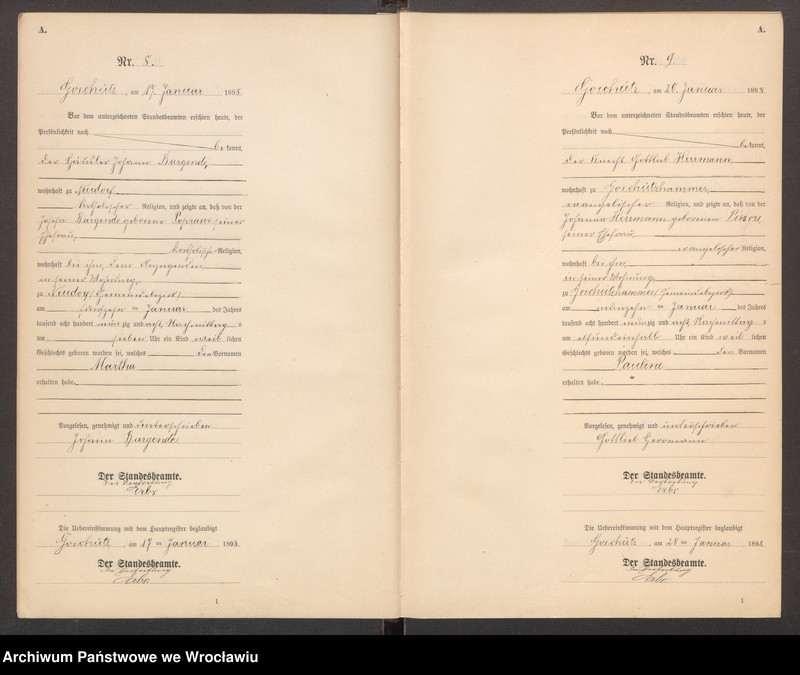 A.
Nr. 8.
Goschütz, am 17. Januar 1898.
Vor dem unterzeichneten Standesbeamten erschien heute, der
Persönlichkeit nach
be kannt,
der Häusler Johann Bargende,
wohnhaft zu Neudorf,
katholischer Religion, und zeigte an, daß von der
Bargende geborene seiner
Ehefrau,
katholischer Religion,
wohnhaft bei ihm, dem Anzeigenden
in seiner Wohnung,
zu Neudorf (Gemeindebezirk)
am fünfzehn ten Januar des Jahres
tausend acht hundert neun zig und acht, Nachmittag s
um sieben Uhr ein Kind weib lichen
Geschlechts geboren worden sei, welches den Vornamen
Martha
erhalten habe.
Vorgelesen, genehmigt und unterschrieben
Johann Bargende
Der Standesbeamte.
In Vertretung
Die Uebereinstimmung mit dem Hauptregister beglaubigt
Goschütz, am 17 ten Januar 1898.
Der Standesbeamte.
In Vertretung
1
A.
Nr. 9.
Goschütz, am 20. Januar 1898.
Vor dem unterzeichneten Standesbeamten erschien heute, der
Persönlichkeit nach
be kannt,
der Knecht Gottlieb Herrmann,
wohnhaft zu Goschützhammer,
evangelischer Religion, und zeigte an, daß von der
Johanna Herrmann geborenen
seiner Ehefrau,
evangelischer Religion,
wohnhaft bei ihm
in seiner Wohnung,
zu Goschützhammer (Gemeindebezirk)
am neunzehn ten Januar des Jahres
tausend acht hundert neunzig und acht, Nachmittag s
um Uhr ein Kind weib lichen
Geschlechts geboren worden sei, welches den Vornamen
Pauline
erhalten habe.
Vorgelesen, genehmigt und unterschrieben
Gottlieb Herrmann
Der Standesbeamte.
In Vertretung
Die Uebereinstimmung mit dem Hauptregister beglaubigt
Goschütz, am 20 ten Januar 1898.
Der Standesbeamte.
In Vertretung
1
Archiwum Państwowe we Wrocławiu